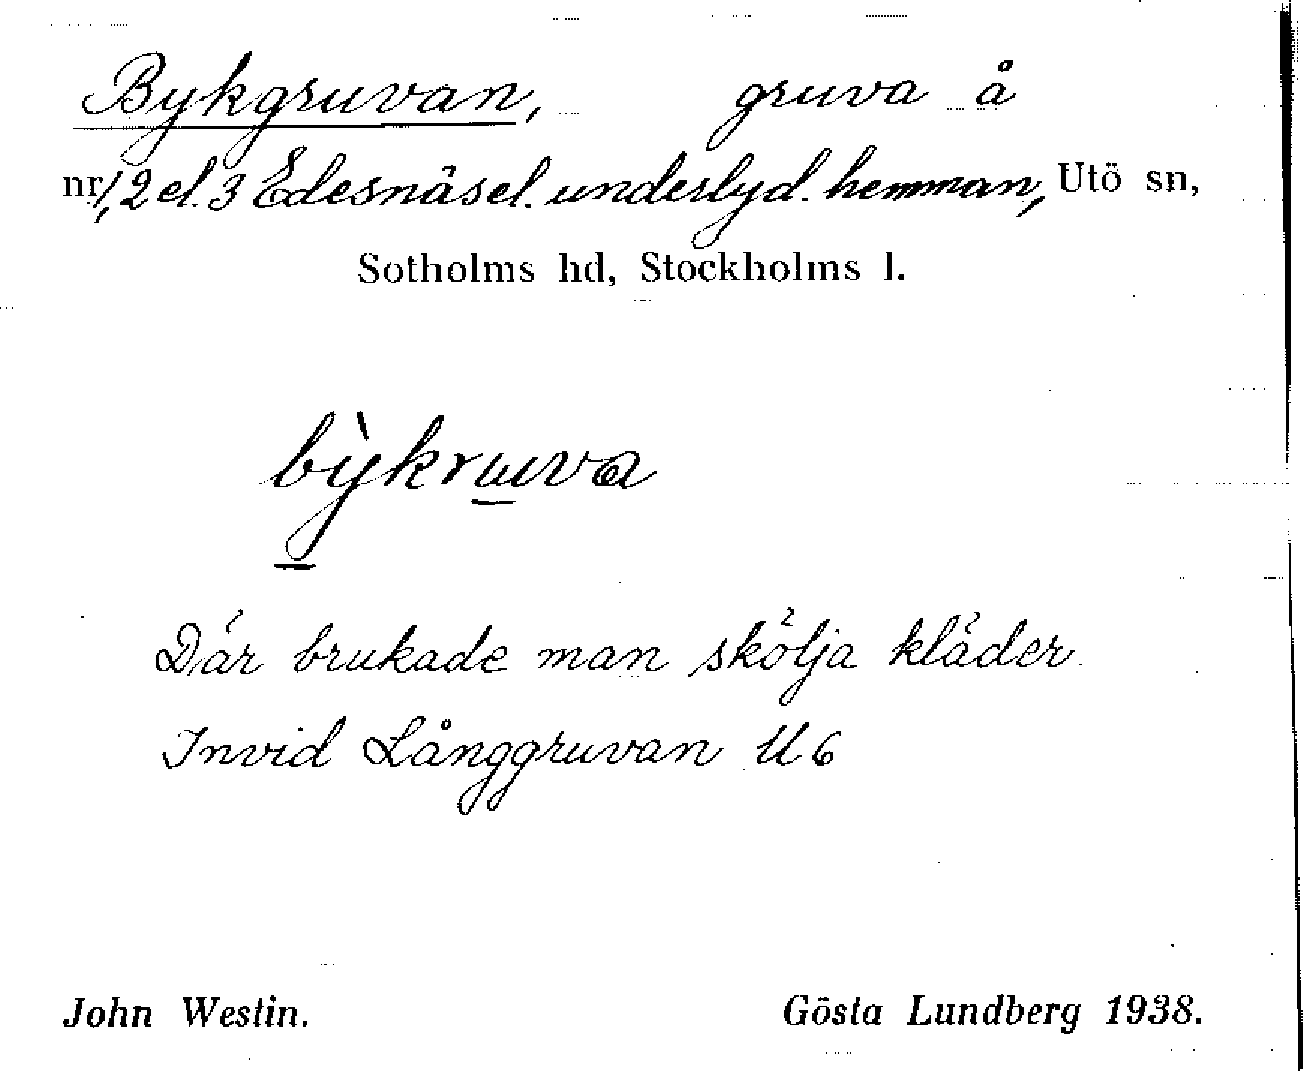 Bykgruvan, gruva å
nr 1, 2 el. 3 Edesnäs el. underlyd. hemman, Utö sn,
Sotholms hd, Stockholms l.
bỳkruva
Där brukade man skölja kläder.
Invid Långgruvan U 6
John Westin. Gösta Lundberg 1938.